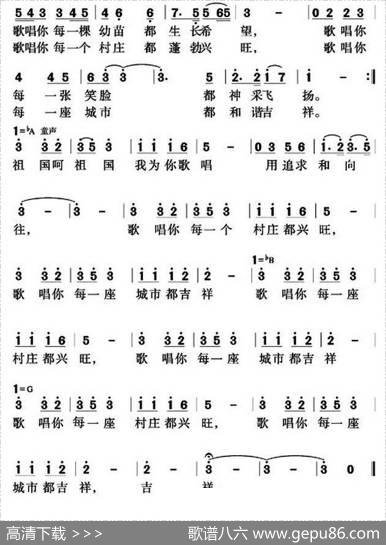 5 4 3 3 4 5 | 4 6 6 | 7. 5 55 65 | 3 - | 0 2 2 3 |
歌唱你 每一棵 幼苗 都 生长希 望, 歌唱你
歌唱你 每一个 村庄 都 蓬勃兴 旺, 歌唱你
4 4 4 5 | 6 3 3 | 3. 5 | 2. 2 1 7 | 1 - |
每 一张 笑脸 都 神采飞 扬。
每 一座 城市 都 和谐吉 祥。
1=♭A 童声
3 3 2 | 3 5 3 | 1 1 1 6 | 5 - | 0 3 5 6 | 1. 2 3. 5 |
祖 国呵 祖 国 我为你歌 唱 用追求 和向
3 - | 3 - | 3 3 2 | 3 5 3 | 1 1 1 6 | 5 - |
往, 歌 唱你 每一个 村庄都兴 旺,
1=♭B
3 3 2 | 3 5 3 | 1 1 1 2 | 2 - | 3 3 2 | 3 5 3 |
歌 唱你 每一座 城市都吉 祥 歌 唱你 每一座
1 1 1 6 | 5 - | 3 3 2 | 3 5 3 | 1 1 1 2 | 2 - |
村庄都兴 旺, 歌 唱你 每一座 城市都吉 祥
1=G
3 3 2 | 3 5 3 | 1 1 1 6 | 5 - | 3 3 2 | 3 5 3 |
歌 唱你 每一座 村庄都兴 旺, 歌 唱你 每一座
1 1 1 2 | 2 - | 2 - | 3 - | 3 - | 3 0 ‖
城市都吉 祥, 吉 祥
高清下载 >>>
歌谱八六 www.gepu86.com